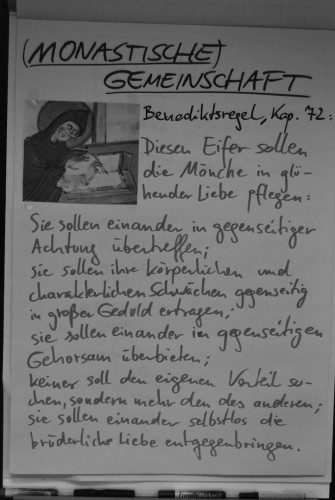 (MONASTISCHE)
GEMEINSCHAFT
Benediktsregel, Kap. 72:
Diesen Eifer sollen
die Mönche in glü-
hender Liebe pflegen:
Sie sollen einander in gegenseitiger
Achtung übertreffen;
sie sollen ihre körperlichen und
charakterlichen Schwächen gegenseitig
in großer Geduld ertragen;
sie sollen einander in gegenseitigen
Gehorsam überbieten;
keiner soll den eigenen Vorteil su-
chen, sondern mehr den des anderen;
sie sollen einander selbstlos die
brüderliche Liebe entgegenbringen.